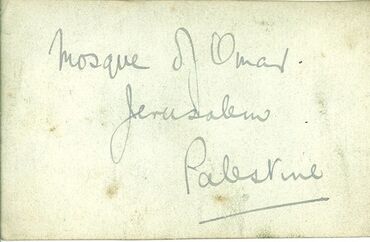 Mosque of Omar.
Jerusalem
Palestine